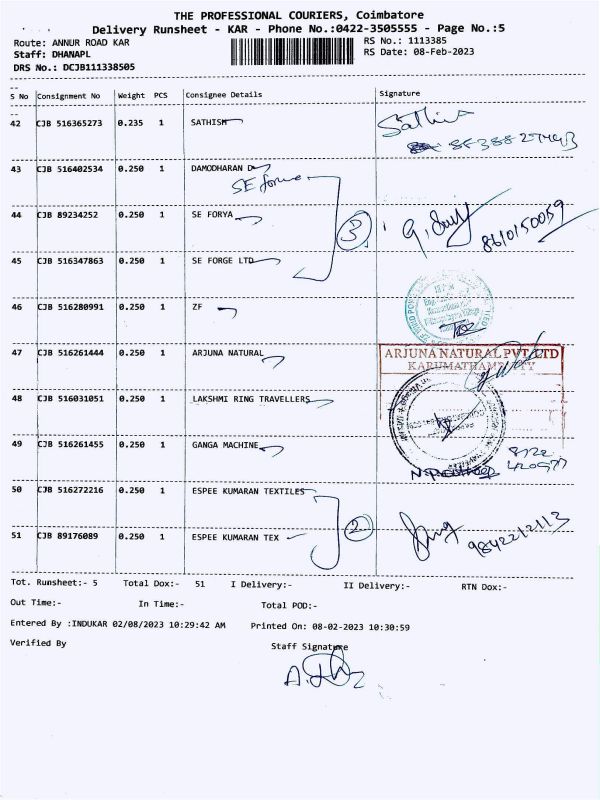 THE PROFESSIONAL COURIERS, Coimbatore
Delivery Runsheet - KAR - Phone No.:0422-3505555 - Page No.:5
Route: ANNUR ROAD KAR
RS No.: 1113385
Staff: DHANAPL
RS Date: 08-Feb-2023
DRS No.: DCJB111338505
S No Consignment No Weight PCS Consignee Details Signature
42 CJB 516365273 0.235 1 SATHISH
Sathish
43 CJB 516402534 0.250 1 DAMODHARAN D
SE forge
44 CJB 89234252 0.250 1 SE FORYA
3
8610150059
45 CJB 516347863 0.250 1 SE FORGE LTD
46 CJB 516280991 0.250 1 ZF
47 CJB 516261444 0.250 1 ARJUNA NATURAL
ARJUNA NATURAL PVT. LTD
48 CJB 516031051 0.250 1 LAKSHMI RING TRAVELLERS
49 CJB 516261455 0.250 1 GANGA MACHINE
50 CJB 516272216 0.250 1 ESPEE KUMARAN TEXTILES
2
9842212113
51 CJB 89176089 0.250 1 ESPEE KUMARAN TEX
Tot. Runsheet:- 5 Total Dox:- 51 I Delivery:- II Delivery:- RTN Dox:-
Out Time:- In Time:- Total POD:-
Entered By :INDUKAR 02/08/2023 10:29:42 AM Printed On: 08-02-2023 10:30:59
Verified By Staff Signature